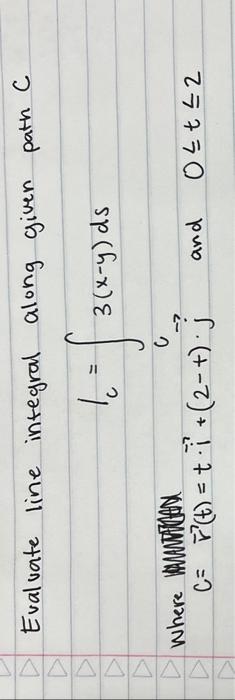 Evaluate line integral along given path C
I_c = ∫_C 3(x-y) ds
Where
C = r⃗(t) = t·i⃗ + (2-t)·j⃗ and 0≤t≤2